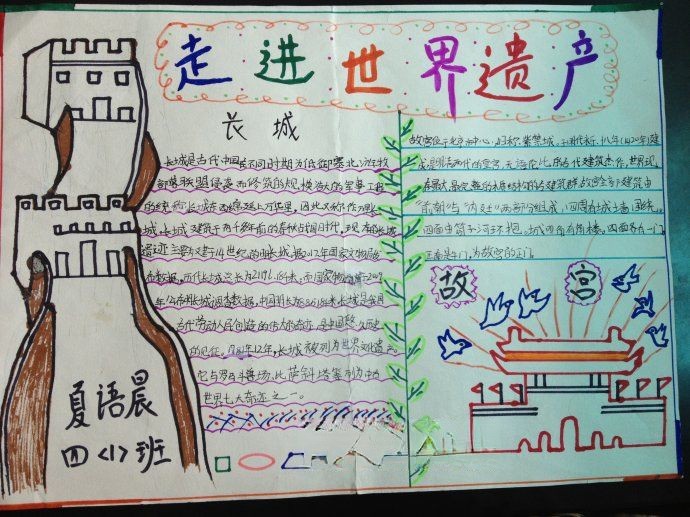 走进世界遗产
长城
长城是古代中国在不同时期为抵御塞北游牧
部落联盟侵袭而修筑的规模浩大的军事工程
的统称。长城东西绵延上万华里，因此又称作万里长
城。长城建筑于两千多年前的春秋战国时代，现存的长城
遗迹主要为建于14世纪的明长城，据2012年国家文物局发
布数据，历代长城总长为21196.18千米，而国家文物局2009
年公布明长城调查数据，中国明长城总长8851.8千米长城是我国
古代劳动人民创造的伟大奇迹，是中国悠久历史
的见证。1987年12年，长城被列为世界文化遗产。
它与罗马斗兽场、比萨斜塔等列为中古
世界七大奇迹之一。
故宫位于北京市中心，
无与伦比的古代建筑杰作，世界现
存最大、最完整的木质结构的古建筑群。故宫全部建筑由
“前朝”与“内廷”两部分组成，四周有城墙围绕。
四面由筒子河环抱。城四角有角楼。四面各有一门
正南是午门，为故宫的正门
故宫
夏语晨
四〈1〉班